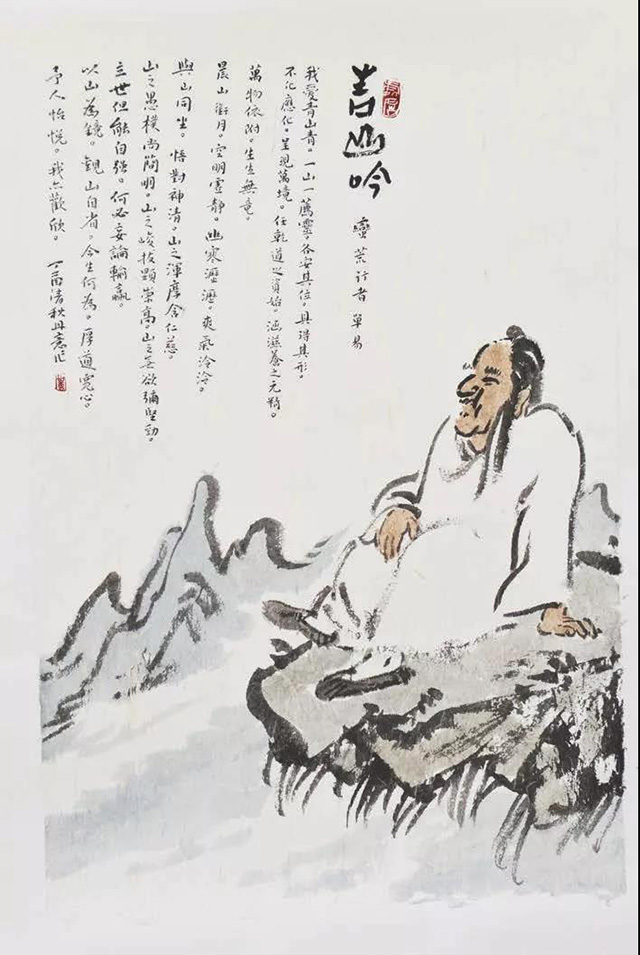 幽吟
蠻荒行者 單易
我愛青山青。一山一薦靈。各安其位。具得其形。
不化應化。呈現萬境。任乾道之資始。涵滋養之元
萬物依附。生生無竟。
晨山銜月。空明靈靜。幽寒瀝瀝。爽氣泠泠。
與山同坐。悟對神清。山之渾厚含仁慈。
山之愚樸尚簡明。山之峻拔顯崇高。山之無欲彌堅勁。
立世但能自強。何必妄論輸贏。
以山為鏡。觀山自省。今生何為。厚道寬心。
予人怡悅。我亦歡欣。 丁酉清秋丹意作